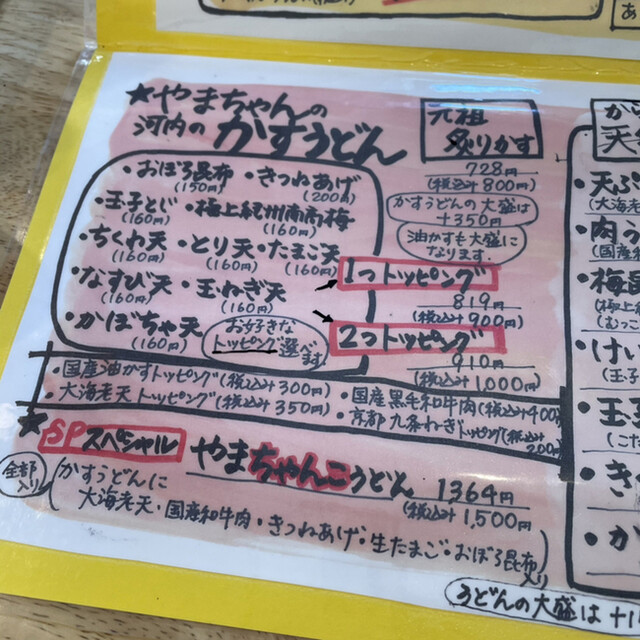 ★やまちゃんの
河内の かすうどん
元祖
炙りかす
728円
(税込み800円)
かすうどんの大盛は
+350円
油かすも大盛に
なります。
・おぼろ昆布 ・きつねあげ
(150円) (200円)
・玉子とじ ・極上紀州南高梅
(160円) (160円)
・ちくわ天 ・とり天 ・たまご天
(160円) (160円) (160円)
・なすび天 ・玉ねぎ天
(160円) (160円)
・かぼちゃ天
(160円)
お好きな
トッピング選べます
1つトッピング
819円
(税込み900円)
2つトッピング
910円
(税込み1,000円)
・国産油かすトッピング(税込み300円)
・大海老天トッピング(税込み350円)
・国産黒毛和牛肉(税込み400
・京都九条ねぎトッピング(税込み
200
★
SPスペシャル やまちゃんこうどん 1364円
(税込み1,500円)
全部
入り
かすうどんに
大海老天・国産和牛肉・きつねあげ・生たまご・おぼろ昆布
入り
うどんの大盛は+1
天
・天ぷ
(大海老
・肉う
(国産
・梅
(極上
・けい
(玉子
・玉
・き
・か